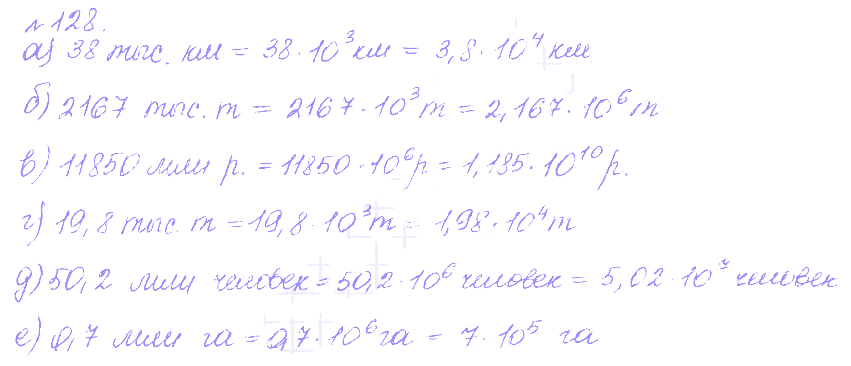 №128.
а) 38 тыс. км = 38·10³км = 3,8·10⁴км
б) 2167 тыс. т = 2167·10³т = 2,167·10⁶т
в) 11850 млн р. = 11850·10⁶р = 1,185·10¹⁰р.
г) 19,8 тыс. т = 19,8·10³т = 1,98·10⁴т
д) 50,2 млн человек = 50,2·10⁶человек = 5,02·10⁷человек
е) 0,7 млн га = 0,7·10⁶га = 7·10⁵ га